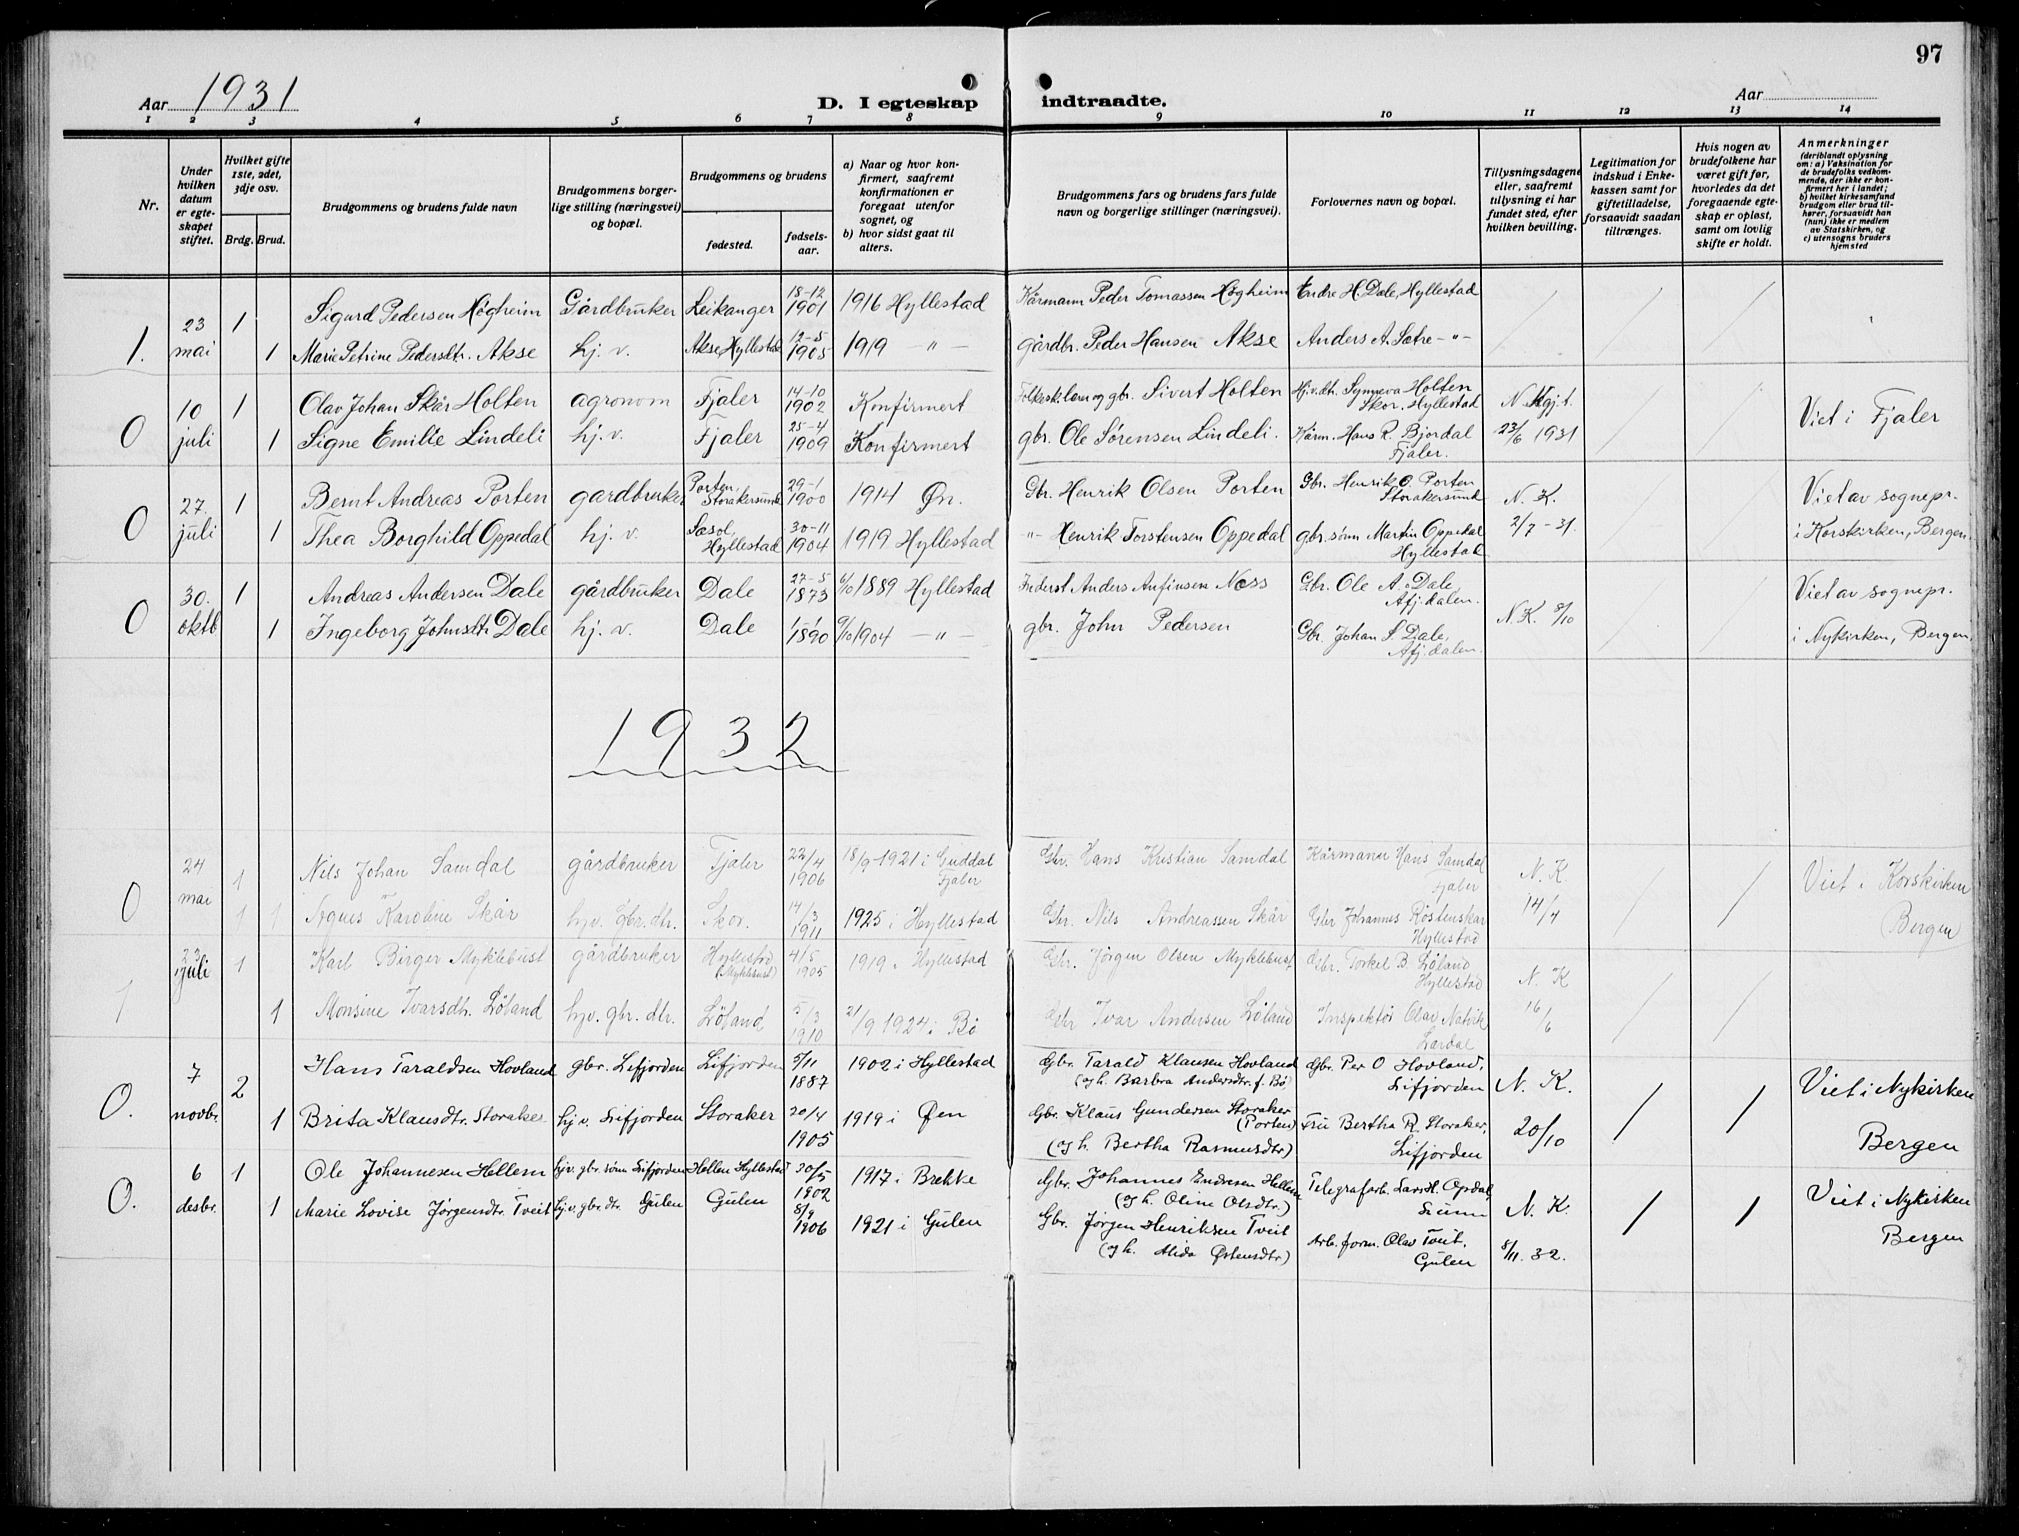 97
Aar 1931
D. I egteskap indtraadte.
Aar
1 2 3 4 5 6 7 8 9 10 11 12 13 14
Nr.
Under hvilken datum er egteskapet stiftet.
Hvilket gifte 1ste, 2det, 3dje osv.
Brdg. Brud.
Brudgommens og brudens fulde navn
Brudgommens borgerlige stilling (næringsvei) og bopæl.
Brudgommens og brudens
fødested.
fødselsaar.
a) Naar og hvor konfirmert, saafremt konfirmationen er foregaat utenfor sognet, og
b) hvor sidst gaat til alters.
Brudgommens fars og brudens fars fulde navn og borgerlige stillinger (næringsvei).
Forlovernes navn og bopæl.
Tillysningsdagene eller, saafremt tillysning ei har fundet sted, efter hvilken bevilling.
Legitimation for indskud i Enkekassen samt for giftetilladelse, forsaavidt saadan tiltrænges.
Hvis nogen av brudefolkene har været gift før, hvorledes da det foregaaende egteskap er opløst, samt om lovlig skifte er holdt.
Anmerkninger (deriblandt oplysning om: a) Vaksination for de brudefolks vedkommende, der ikke er konfirmert her i landet; b) hvilket kirkesamfund brudgom eller brud tilhører, forsaavidt han (hun) ikke er medlem av Statskirken, og c) utensogns bruders hjemsted
1. 23 mai 1 Sigurd Pedersen Høgheim Gårdbruker Leikanger 18-12 1901 1916 Hyllestad Kårmann Peder Tomassen Høgheim Endre H. Dale, Hyllestad
1 Marie Petrine Pedersdtr. Akse hj. v. Akse Hyllestad 12-5 1905 1919 -"- gårdbr. Peder Hansen Akse Anders A. Sætre -"-
0 10 juli 1 Olav Johan Skår Holten agronom Fjaler 14-10 1902 Konfirmert gbr. Sivert Holten Hj.v.dtr. Synneva Holten Skor. Hyllestad
1 Signe Emilie Lindeli hj. v. Fjaler 25-4 1909 Konfirmert gbr. Ole Sørensen Lindeli. Kårm. Hans R. Bjordal Fjaler. 23/6 1931 Viet i Fjaler
0 27. juli 1 Bernt Andreas Porten gardbruker Porten, Storakersund 29-1 1900 1914 Øn. Gbr. Henrik Olsen Porten Gbr. Henrik O. Porten Storakersund N. K. Viet av sognepr.
1 Thea Borghild Oppedal hj. v. Hyllestad 30-11 1904 1919 Hyllestad -"- Henrik Torstensen Oppedal gbr. sønn Martin Oppedal Hyllestad 2/7-31. i Korskirken, Bergen.
0 30. oktb 1 Andreas Andersen Dale gårdbruker Dale 27-5 1873 6/10 1889 Hyllestad Inderst Anders Anfinsen Ness Gbr. Ole A. Dale, Afj.dalen. N. K. 8/10 Viet av sognepr.
1 Ingeborg Johnsdtr Dale hj. v. Dale 1-1 1890 9/10 1904 -"- gbr. John Pedersen Gbr. Johan S. Dale, Afj.dalen. i Nykirken, Bergen.
1932
0 24 mai 1 Nils Johan Samdal gårdbruker Fjaler 22/4 1906 18/9 1921 i Guddal Fjaler Gbr. Hans Kristian Samdal Kårmann Hans Samdal Fjaler N. K Viet i Korskirken
1 1 Agnes Karoline Skår hjv. gbr. dtr. Skor. 14/3 1911 1925 i Hyllestad Gbr. Nils Andreassen Skår Gbr Johannes Röstenskar Hyllestad 14/4 Bergen
1 23 juli 1 Karl Birger Myklebust gårdbruker Hyllestad (Myklebust) 4/5 1905 1919 i Hyllestad Gbr. Jørgen Olsen Myklebust Gbr. Torkel B. Løland Hyllestad N. K
1 Monsine Ivarsdtr. Løland hjv. gbr. dtr. Løland 5/3 1910 21/9 1924 i Bø Gbr Ivar Andersen Løland Inspektør Olav Natvik Lærdal 16/6
0. 7 novbr. 2 Hans Taraldsen Hovland gbr. Lifjorden Lifjorden 5/11 1887 1902 i Hyllestad Gbr. Tarald Klausen Hovland (og h. Barbra Andersdtr. f. Bø) Gbr. Per O Hovland, Lifjorden N. K. Viet i Nykirken
1 Brita Klausdtr. Storaker hjv. Lifjorden Storaker 20/4 1905 1919 i Øen Gbr. Klaus Gundersen Storaker (Porten) (og h. Bertha Rasmusdtr) Fru Bertha R. Storaker, Lifjorden 20/10 Bergen
0. 6 desbr. 1 Ole Johannesen Hellem hjv. gbr. sønn Lifjorden Hellen Hyllestad 30/5 1902 1917 i Brekke Gbr. Johannes Endresen Hellem (og h. Oline Olsdtr.) Telegrafarb. Lars H. Opdal, N. K. Viet i Nykirken
1 Marie Lovise Jørgensdtr Tveit hj.v. gbr. dtr. Gulen Gulen 8/9 1906 1921 i Gulen Gbr. Jørgen Henriksen Tveit (og h. Alida Østensdtr) Arb. form. Olav Tveit, Gulen 8/11. 32. Bergen